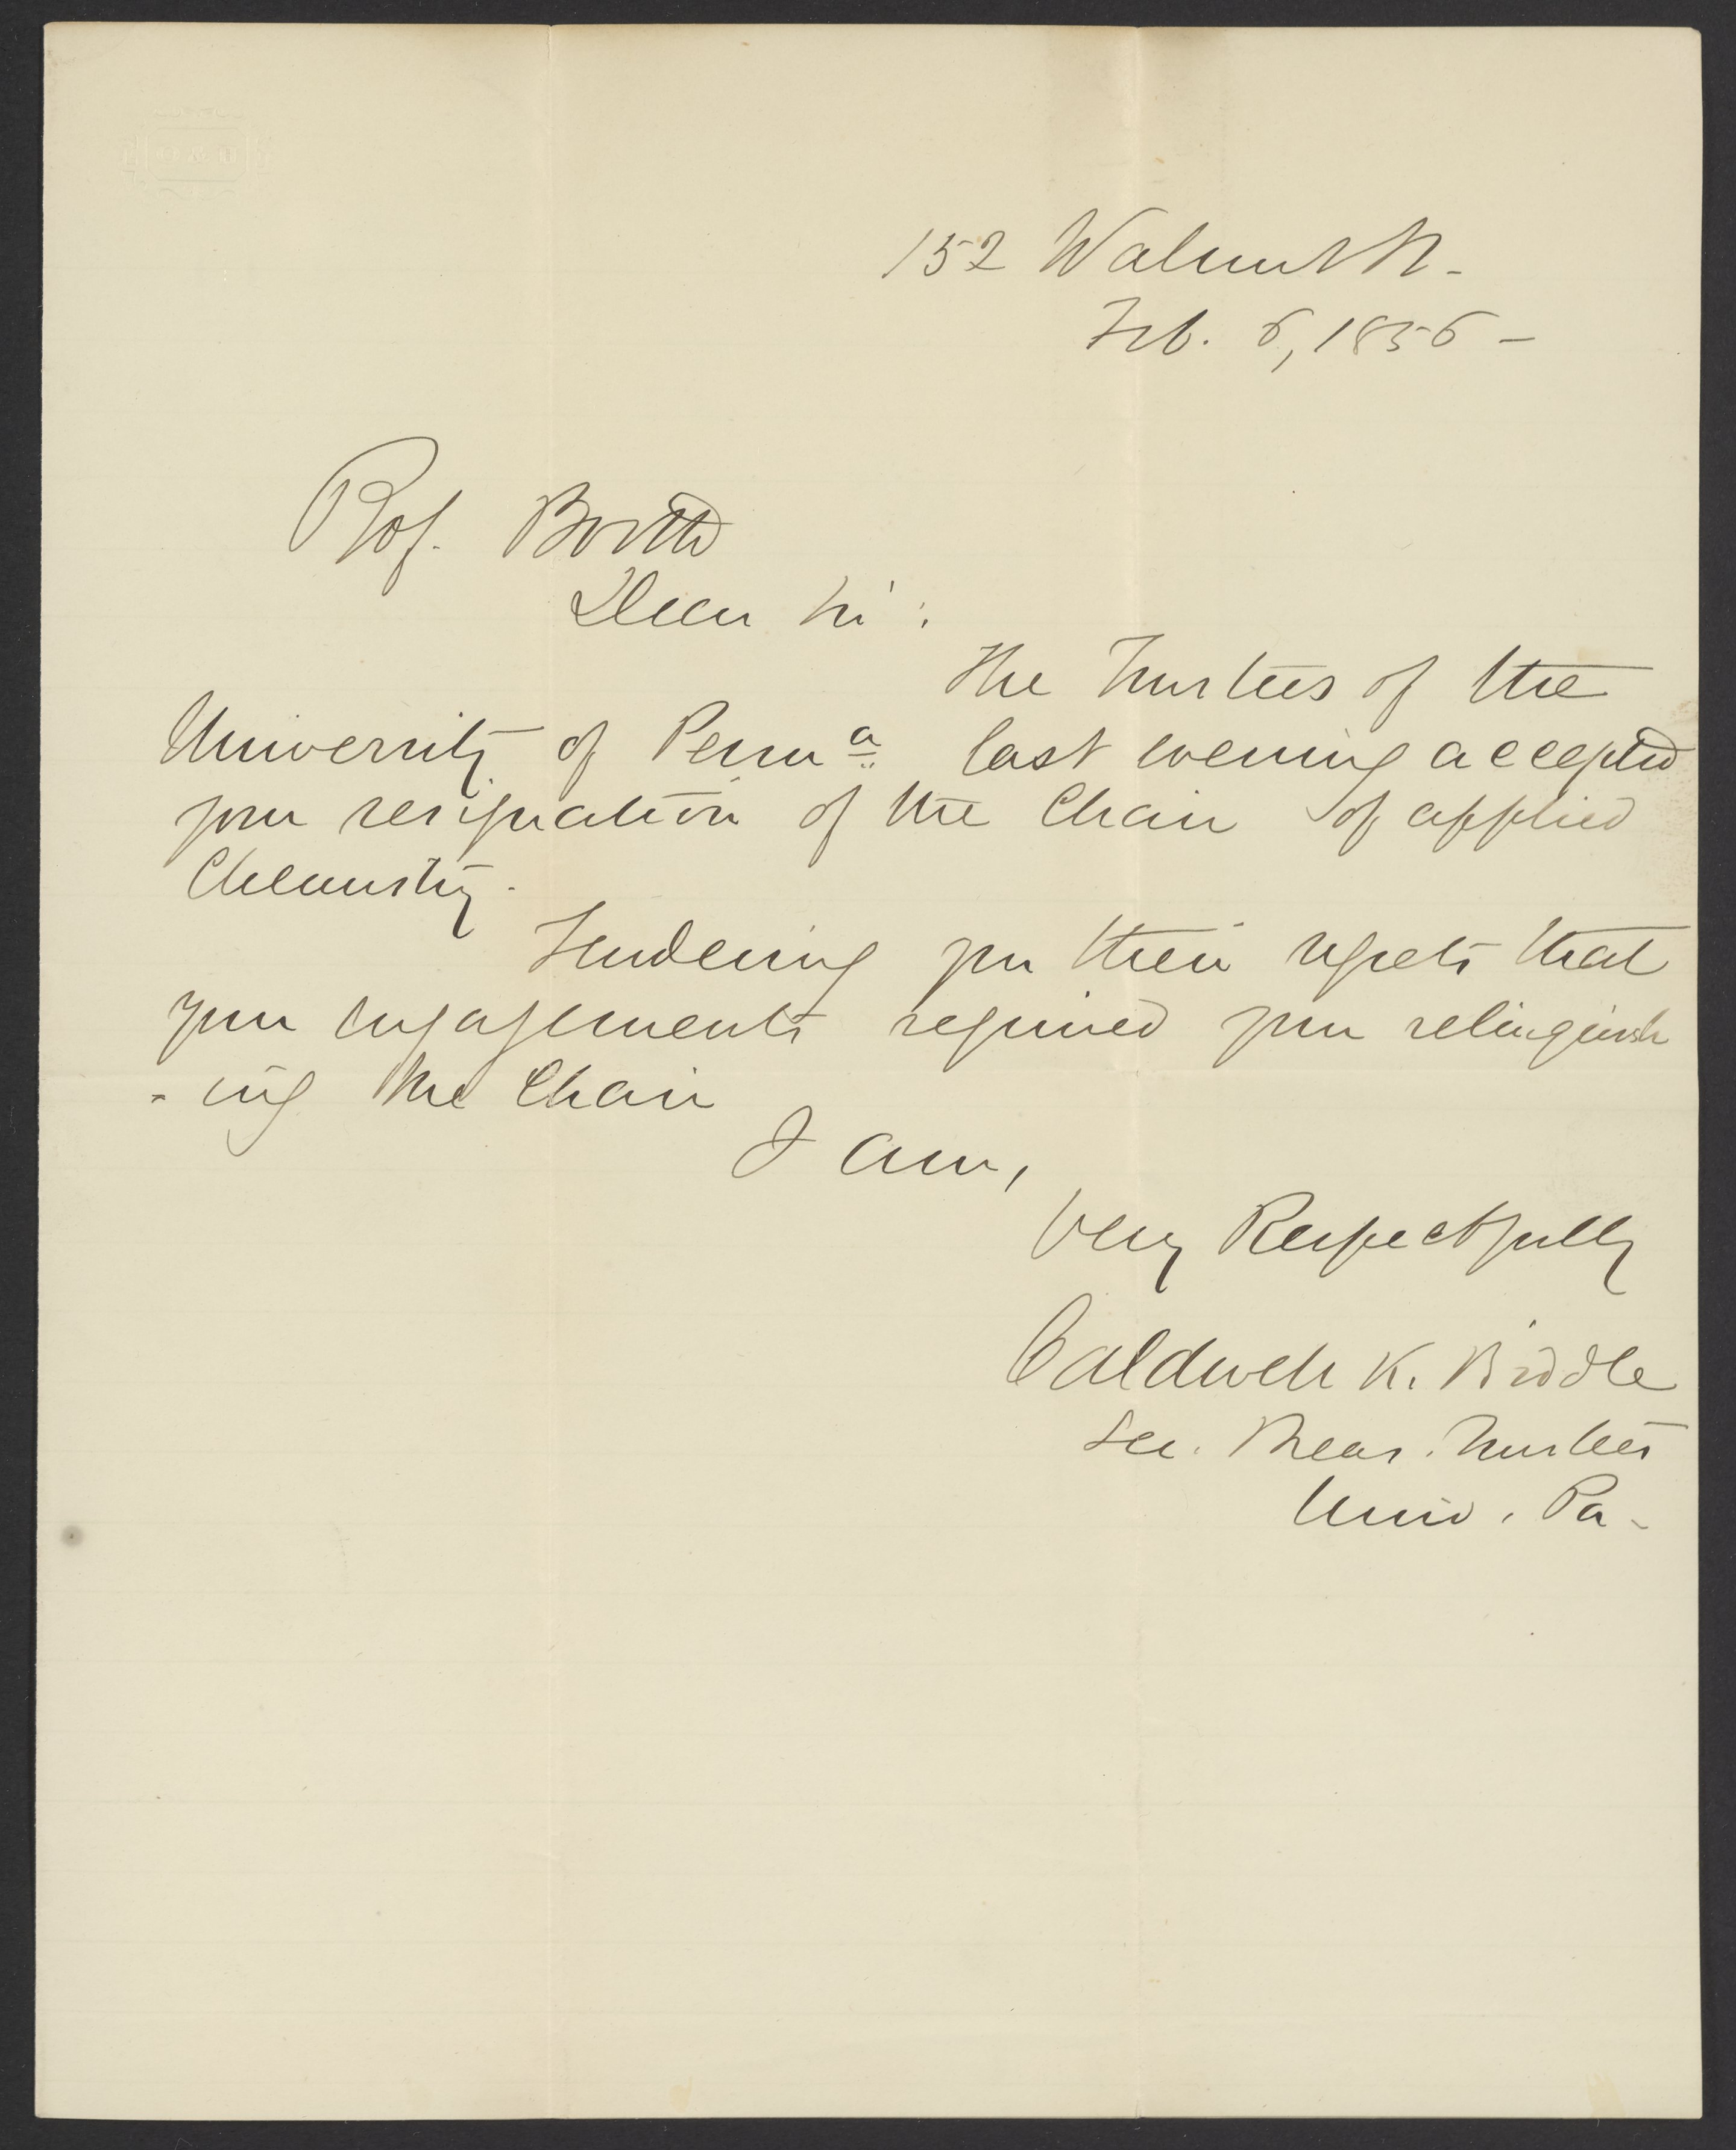 152 Walnut St.
Feb. 6, 1856 -
Prof. Booth
Dear Sir:
The Trustees of the
University of Pennª last evening accepted
your resignation of the Chair of applied
Chemistry.
Tendering you their regrets that
your engagements required your relinquish
-ing the Chair
I am,
Very Respectfully
Caldwell K. Biddle
Sec. Treas. Trustees
Univ. Pa.